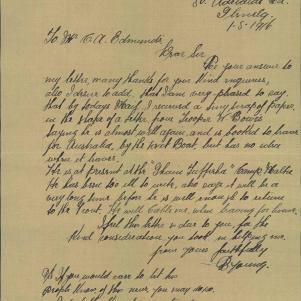 Glenelg
1-5-1916
To Mr. C. A. Edmunds
Dear Sir
Re your answer to
my letter, many thanks for your kind enquiries,
also I desire to add, that I am very pleased to say,
that by todays Mail, I received a tiny scrap of paper,
in the shape of a letter from Trooper W Bowes
saying he is almost well again, and is booked to leave
for Australia, by the next Boat but has no idea
when it leaves.
He is at present at the "Ghain Tuffieha" Camp Malta
He has been too ill to write, also says it will be a
very long time before he is well enough to return
to the front. He will Cable me when leaving for home.
I feel this letter is due to you, for the
kind consideration you took in helping me.
from yours faithfully
B Young.
If you would care to let the
people know of the news you may do so.